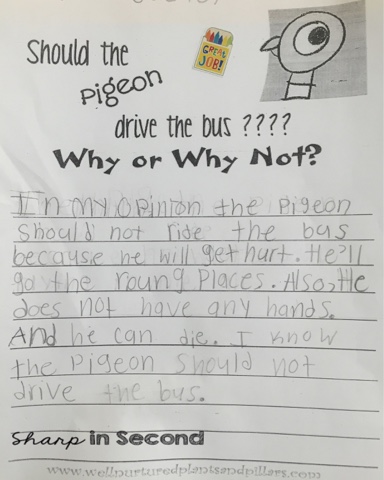 Should the
Pigeon
GREAT
JOB!
drive the bus ????
Why or Why Not?
In my opinion the Pigeon
Should not ride the bus
because he will get hurt. He'll
go the roung Places. Also, He
does not have any hands.
And he can die. I know
the Pigeon Should not
drive the bus.
Sharp in Second
www.wellnurturedplantsandpillars.com